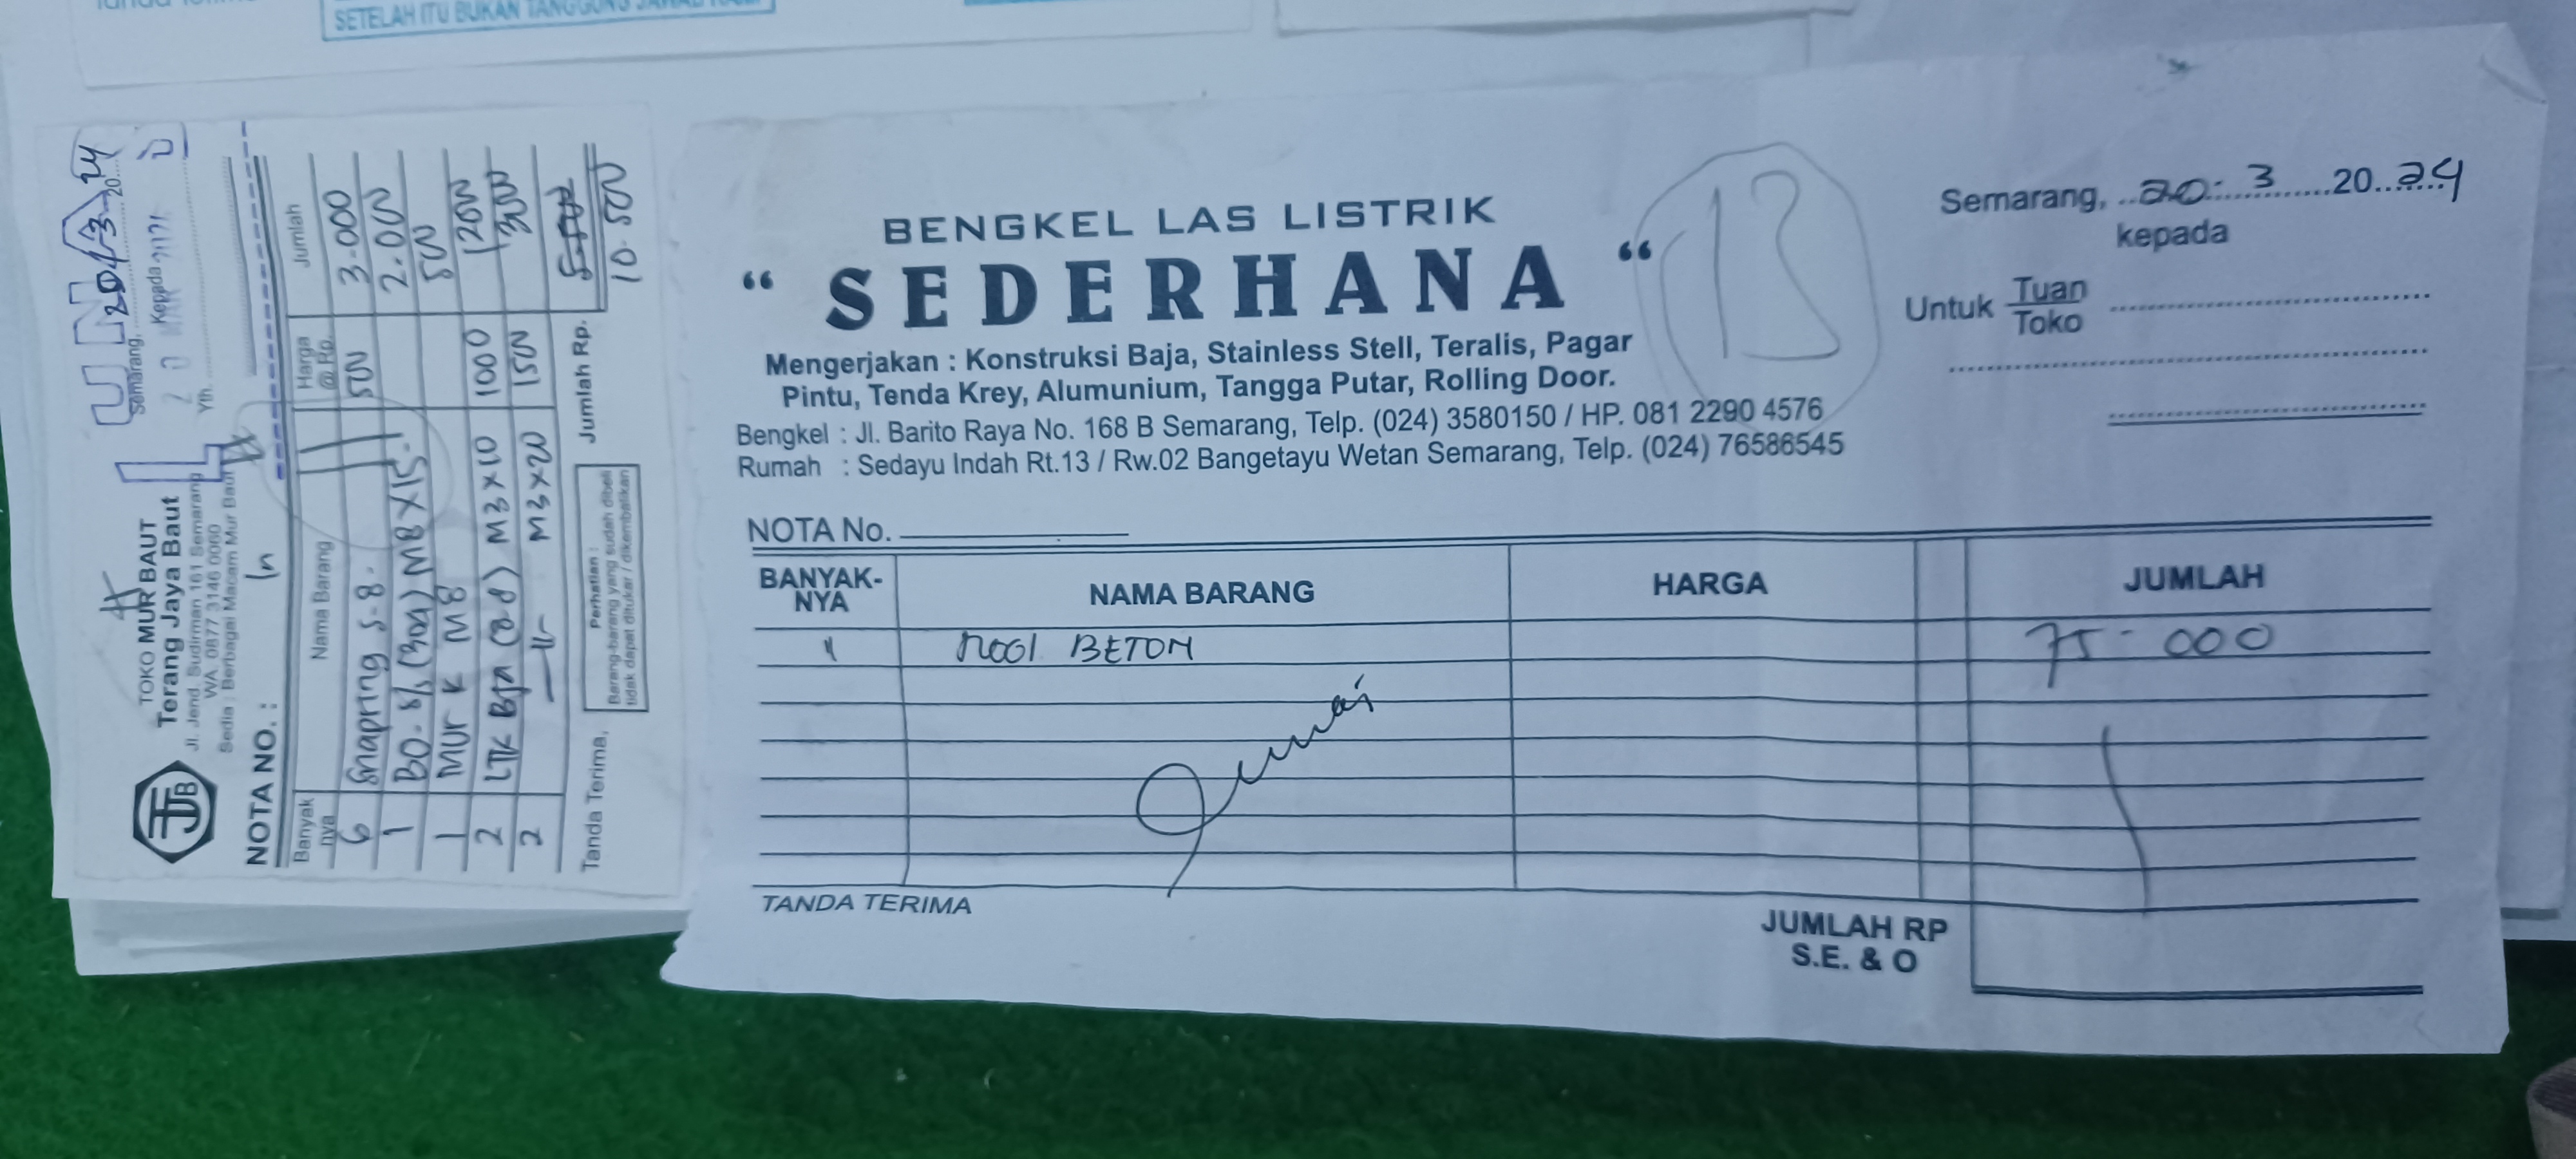 BENGKEL LAS LISTRIK
“ SEDERHANA “
Mengerjakan : Konstruksi Baja, Stainless Stell, Teralis, Pagar
Pintu, Tenda Krey, Alumunium, Tangga Putar, Rolling Door.
Bengkel : Jl. Barito Raya No. 168 B Semarang, Telp. (024) 3580150 / HP. 081 2290 4576
Rumah : Sedayu Indah Rt.13 / Rw.02 Bangetayu Wetan Semarang, Telp. (024) 76586545
Semarang, 20. 3 20 24
kepada
Untuk Tuan
Toko
12
NOTA No.
BANYAK-NYA NAMA BARANG HARGA JUMLAH
1 BETON 75.000
TANDA TERIMA
JUMLAH RP
S.E. & O
TJB
TOKO MUR BAUT
Terang Jaya Baut
Jl. Jend. Sudirman 161 Semarang
WA. 0877 3146 0060
Sedia : Berbagai Macam Mur Baut
Semarang, 20/3 20 24
Kepada
Yth.
LUNAS
NOTA NO. : ln
Banyak nya Nama Barang Harga @ Rp. Jumlah
6 Snapring S-8. 500 3.000
1 BO. M8 X 15. 2.000
1 Mur K M8 500
2 M3 X 10 1000
2 –〃– M3 X 20 1500
Tanda Terima,
Perhatian :
Barang-barang yang sudah dibeli
tidak dapat ditukar / dikembalikan
Jumlah Rp.
10.500
SETELAH ITU BUKAN TANGGUNG